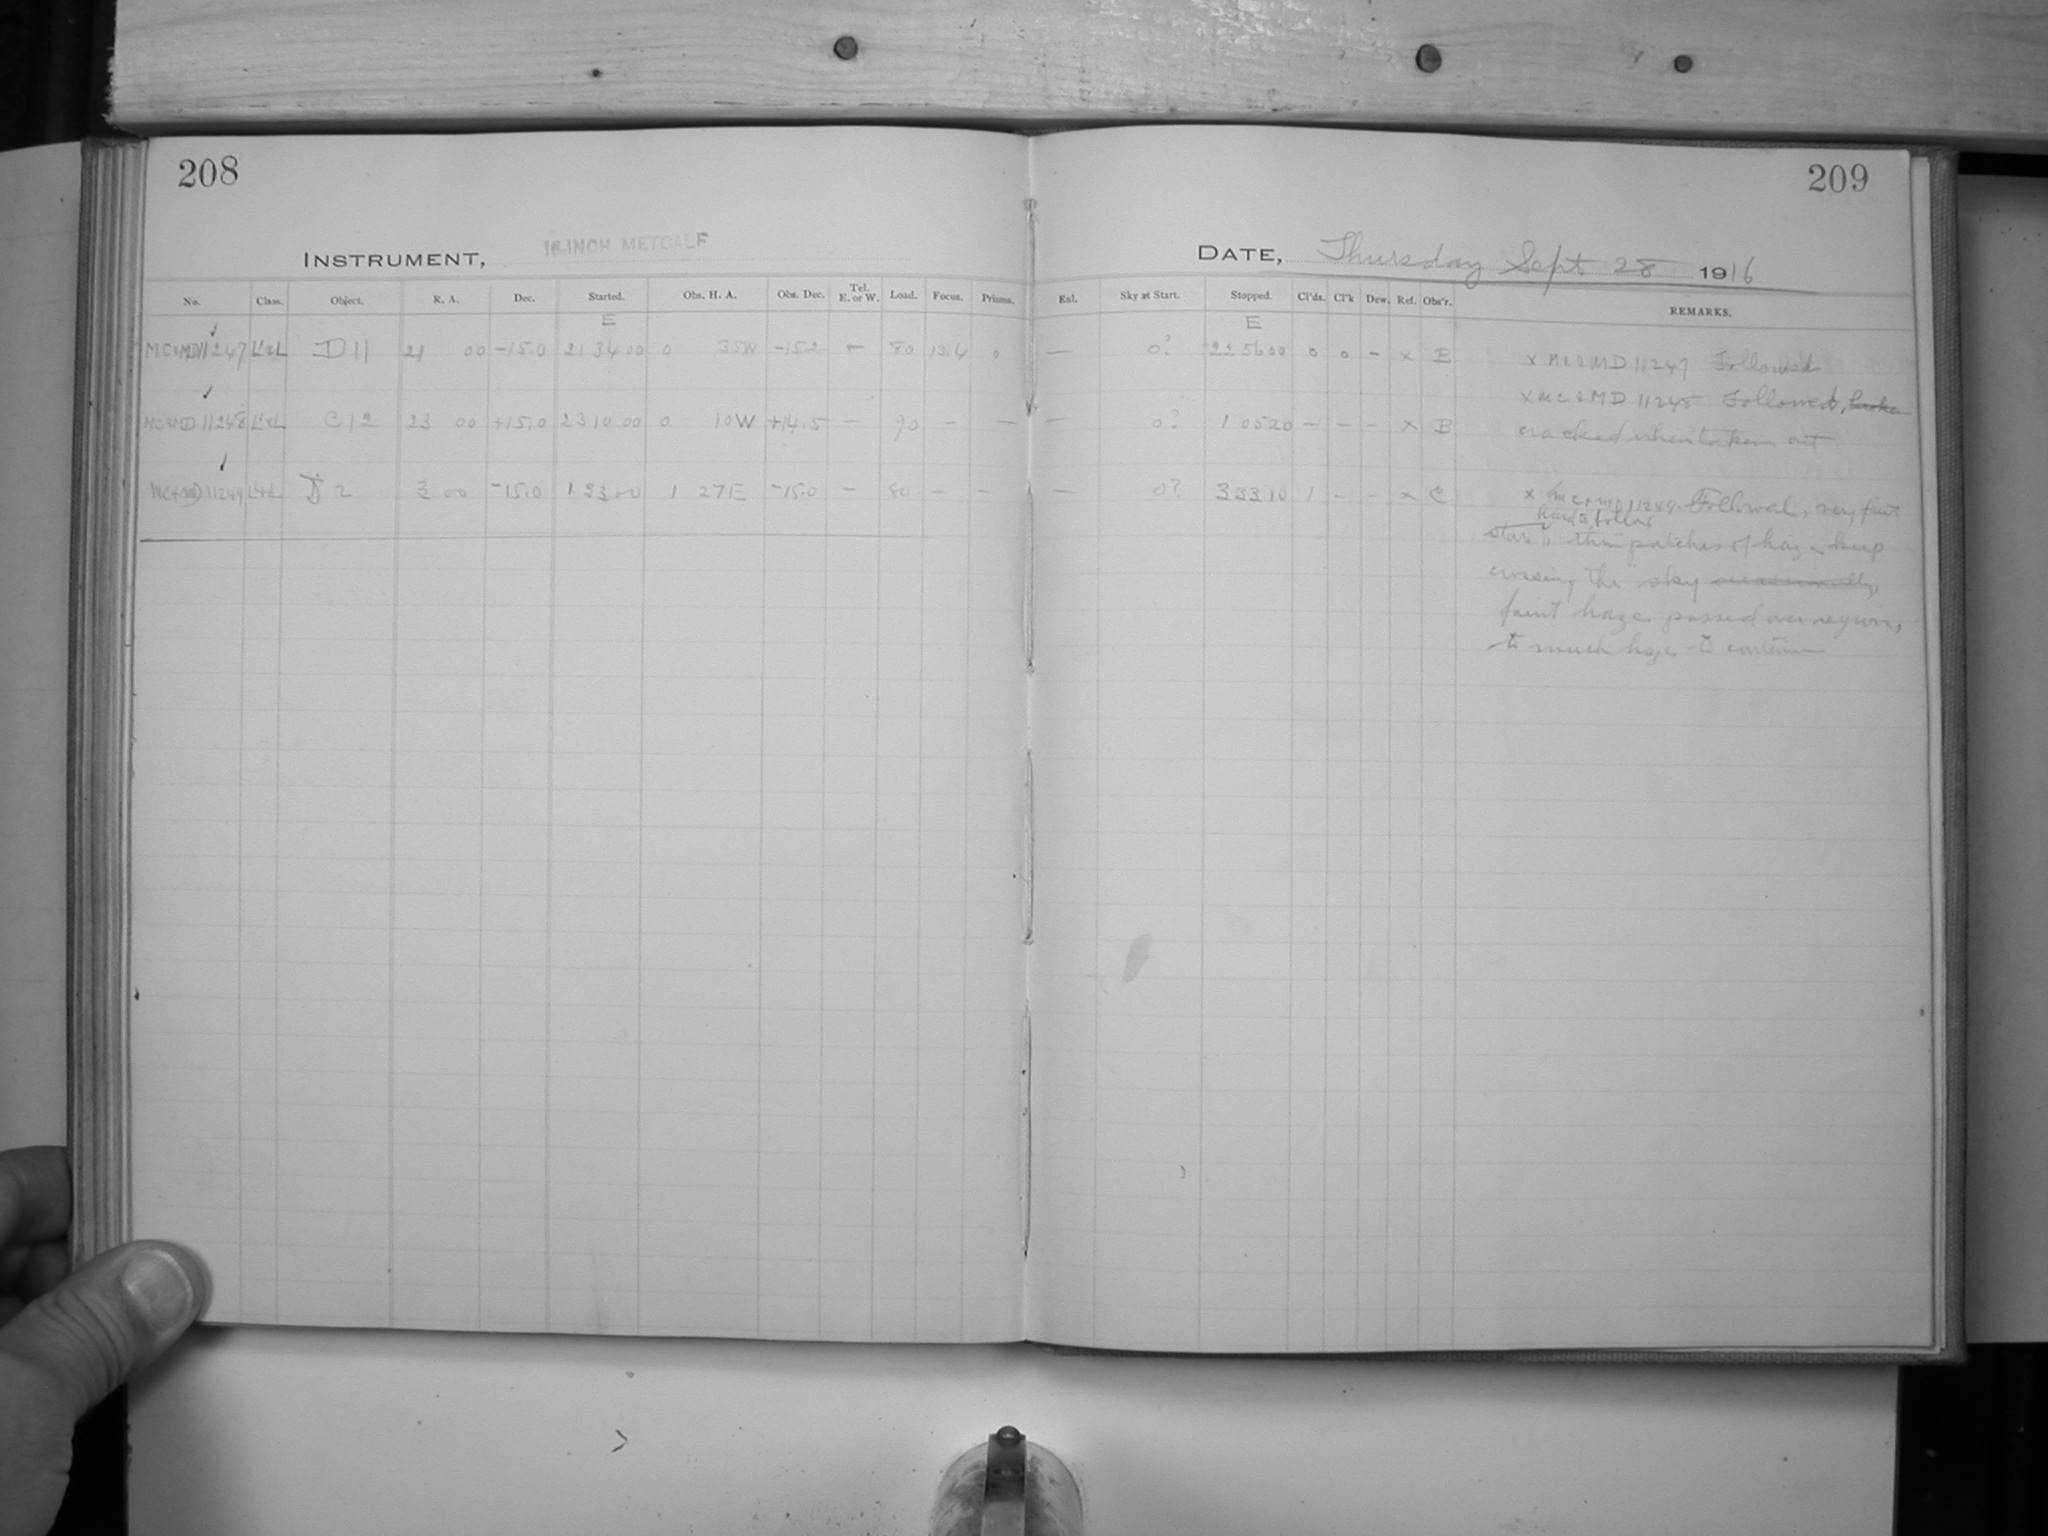 208
209
INSTRUMENT, 16-INCH METCALF
DATE, Thursday Sept 28 1916
No. Class. Object. R. A. Dec. Started. Obs. H. A. Obs. Dec. Tel. E. or W. Load. Focus. Prisms. Enl. Sky at Start. Stopped. Cl'ds. Cl'k Dew. Ref. Obs'r. REMARKS.
E E
MC&MD11247 L&L D 11 21 00 -15.0 21 34 00 0 35W -15.2 - 80 13.4 0 — 0? 22 56 00 0 0 - x B x MC&MD 11247 Followed
x MC&MD 11248 Followed, broke
MC&MD 11248 L&L C 12 23 00 +15.0 23 10 00 0 10W +14.5 — 90 - — — 0? 1 05 20 - - - x B cracked when taken out
MC&MD 11249 L&L D 2 3 00 -15.0 1 33 00 1 27E -15.0 — 80 - - — 0? 3 33 10 1 - - x C x MC&MD 11249. Followed, very faint
hard to follow
star, thin patches of haze keep
crossing the sky occasionally,
faint haze passed over region,
to much haze to continue